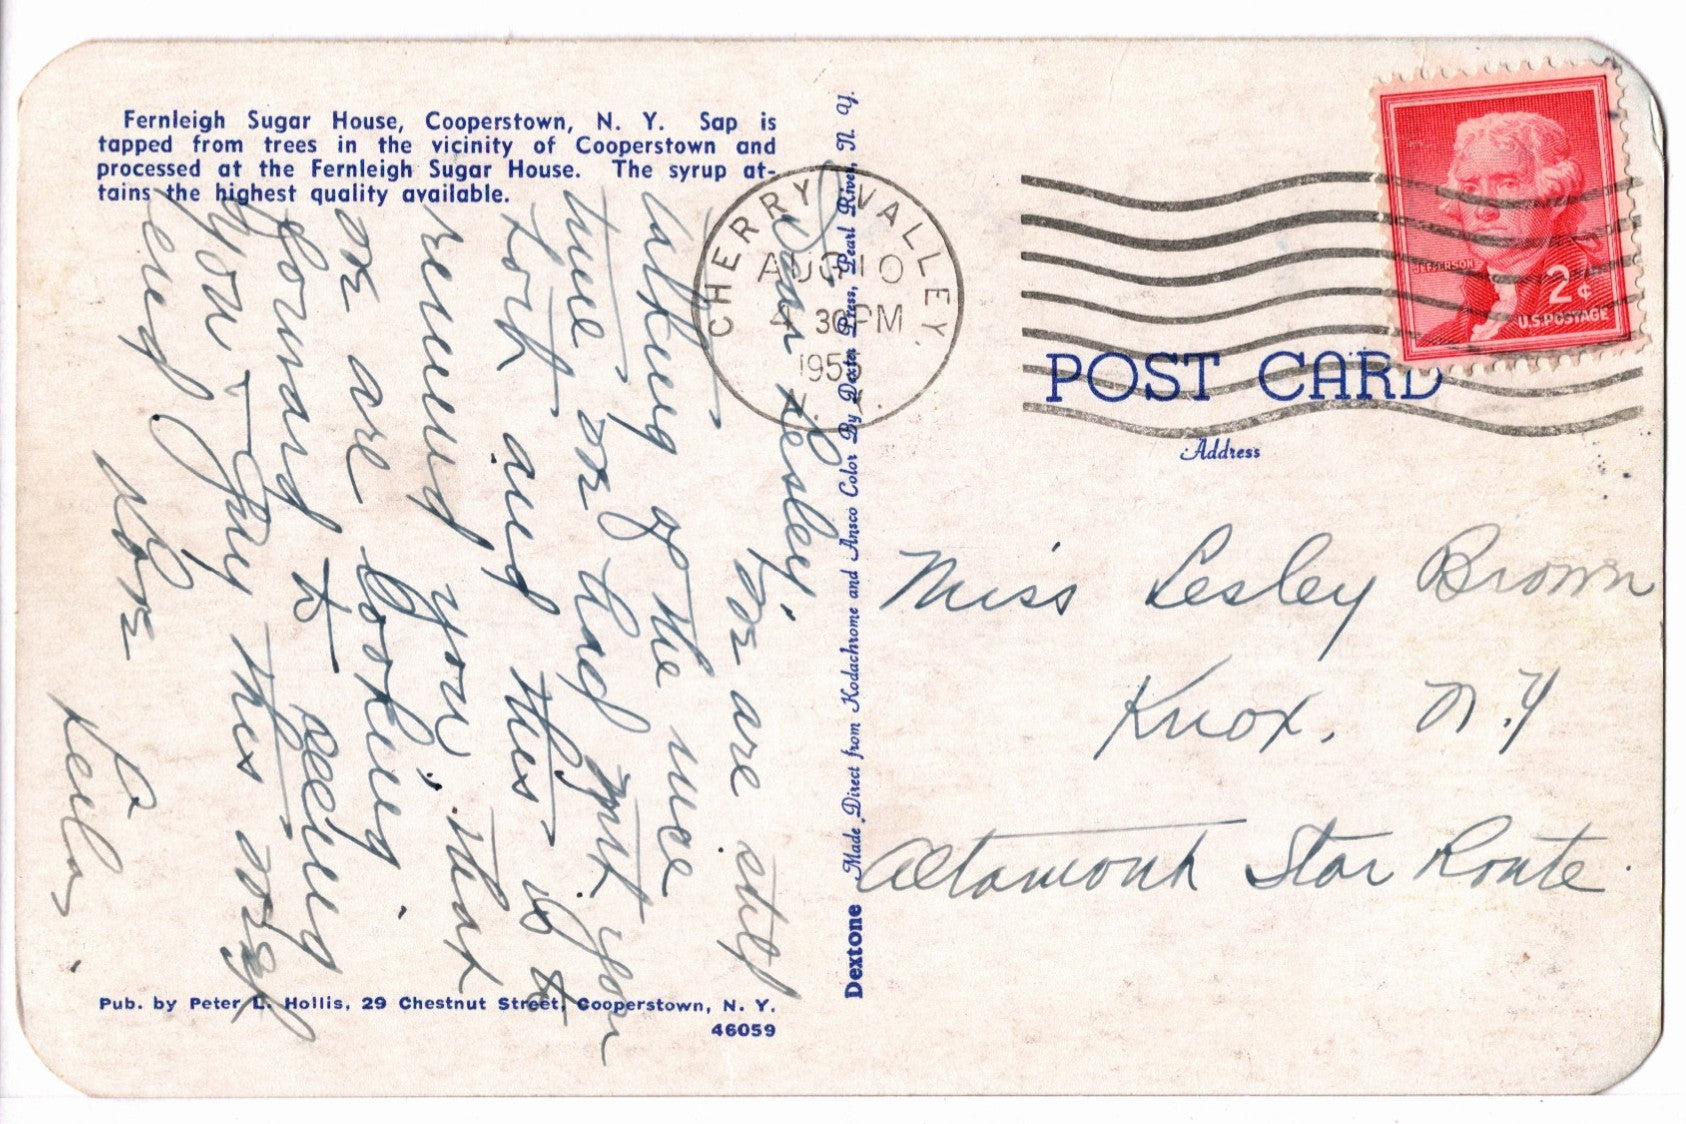 Fernleigh Sugar House, Cooperstown, N. Y. Sap is
tapped from trees in the vicinity of Cooperstown and
processed at the Fernleigh Sugar House. The syrup at-
tains the highest quality available.
Dear Lesley,
We are still
talking of the nice
time we had with you
Tork and this is to
remind you, that
we are looking
forward to seeing
you - any this week
end,
Love
Leila.
Pub. by Peter L. Hollis, 29 Chestnut Street, Cooperstown, N. Y.
46059
Dextone Made Direct from Kodachrome and Ansco Color By Dexter Press, Pearl River, N. Y.
CHERRY VALLEY,
AUG 10
4 30 PM
195
N. Y.
JEFFERSON
2¢
U.S. POSTAGE
POST CARD
Address
Miss Lesley Brown
Knox, N.Y
Altamont Star Route.